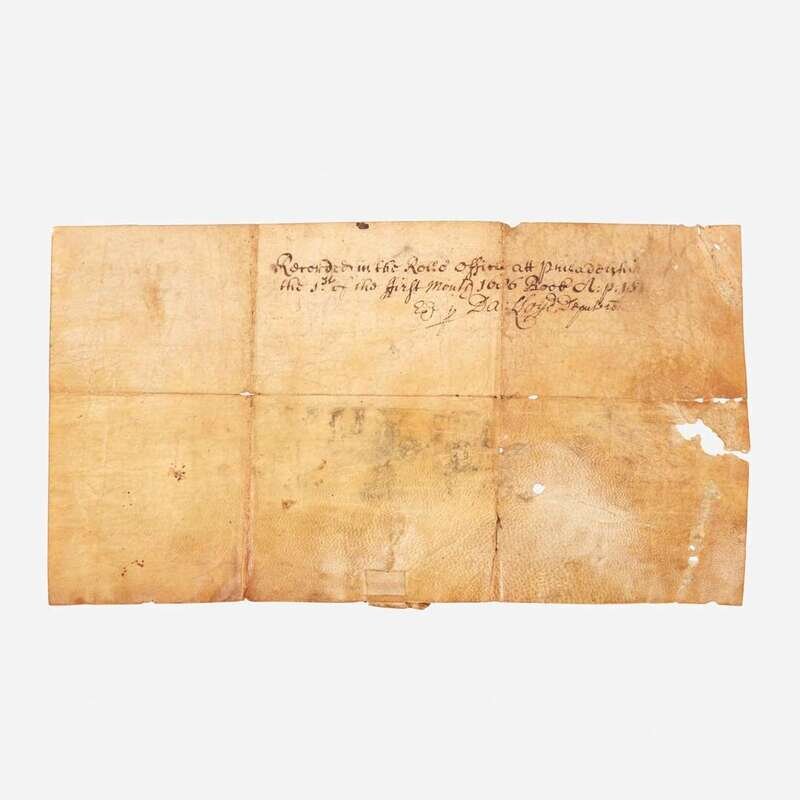 Recorded in the Rolls Office att Philadelphi
the 1st of the ffirst Month 1686 Book A: p. 15
Da: Lloyd Deputie